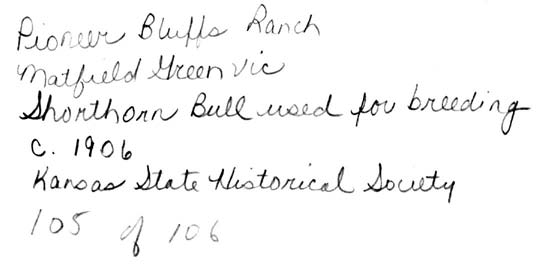 Pioneer Bluffs Ranch
Matfield Green vic
Shorthorn Bull used for breeding
c. 1906
Kansas State Historical Society
105 of 106